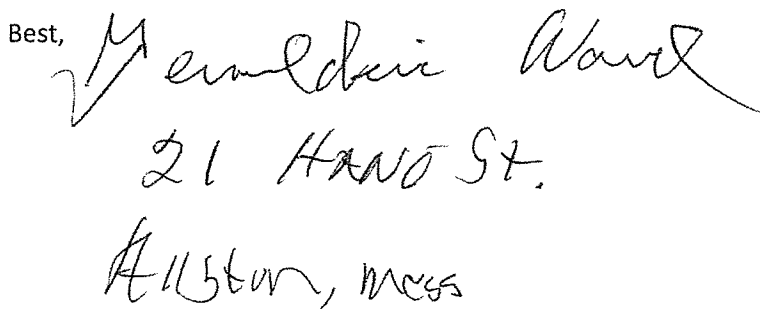 Best, Geraldine Ward
21 HANO St.
Allston, Mass